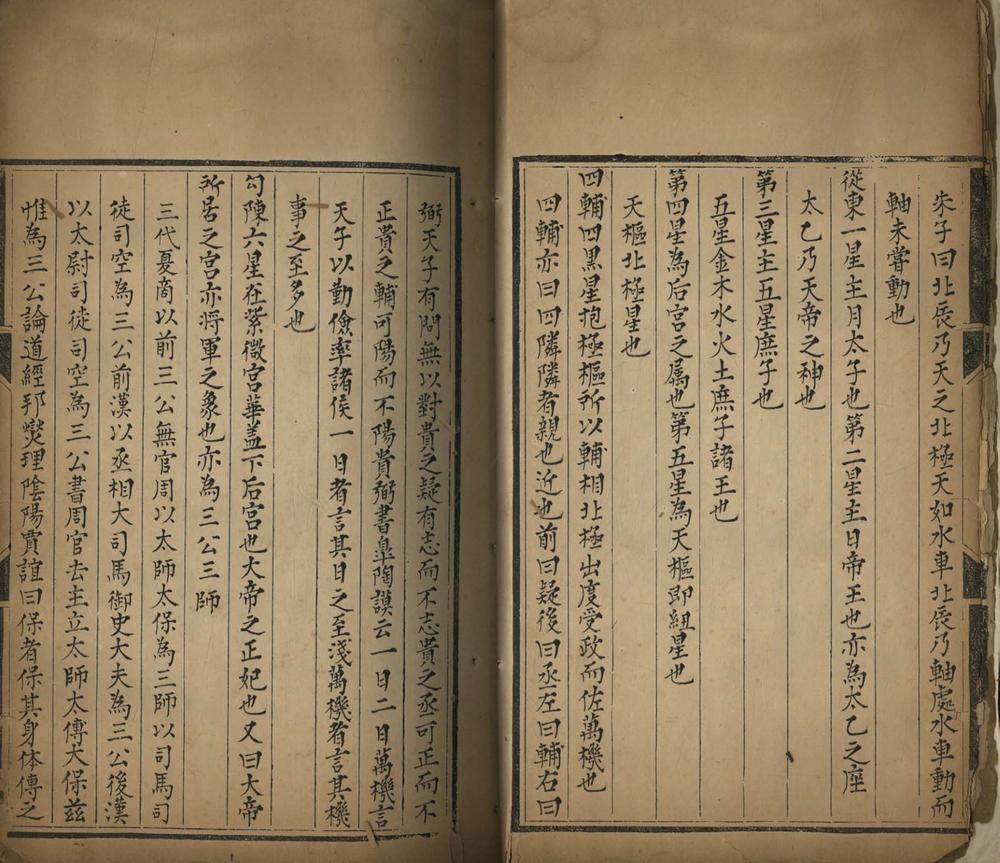 朱子曰北辰乃天之北極天如水車北辰乃軸處水車動而
軸未嘗動也
從東一星主月太子也第二星主日帝王也亦為太乙之座
太乙乃天帝之神也
第三星主五星庶子也
五星金木水火土庶子諸王也
第四星為后宮之属也第五星為天樞即紐星也
天樞北極星也
四輔四黑星抱極樞所以輔相北極出度受政而佐萬機也
四輔亦曰四隣隣者親也近也前曰疑後曰丞左曰輔右曰
弼天子有問無以對責之疑有志而不志責之丞可正而不
正責之輔可陽而不陽責弼書臯陶謨云一日二日萬機言
天子以勤儉率諸侯一日者言其日之至淺萬機者言其機
事之至多也
勾陳六星在紫微宮華盖下后宮也大帝之正妃也又曰大帝
所居之宮亦將軍之象也亦為三公三師
三代夏商以前三公無官周以太師太保為三師以司馬司
徒司空為三公前漢以丞相大司馬御史大夫為三公後漢
以太尉司徒司空為三公書周官去主立太師太傅太保兹
惟為三公論道經邦燮理陰陽賈誼曰保者保其身体傅之